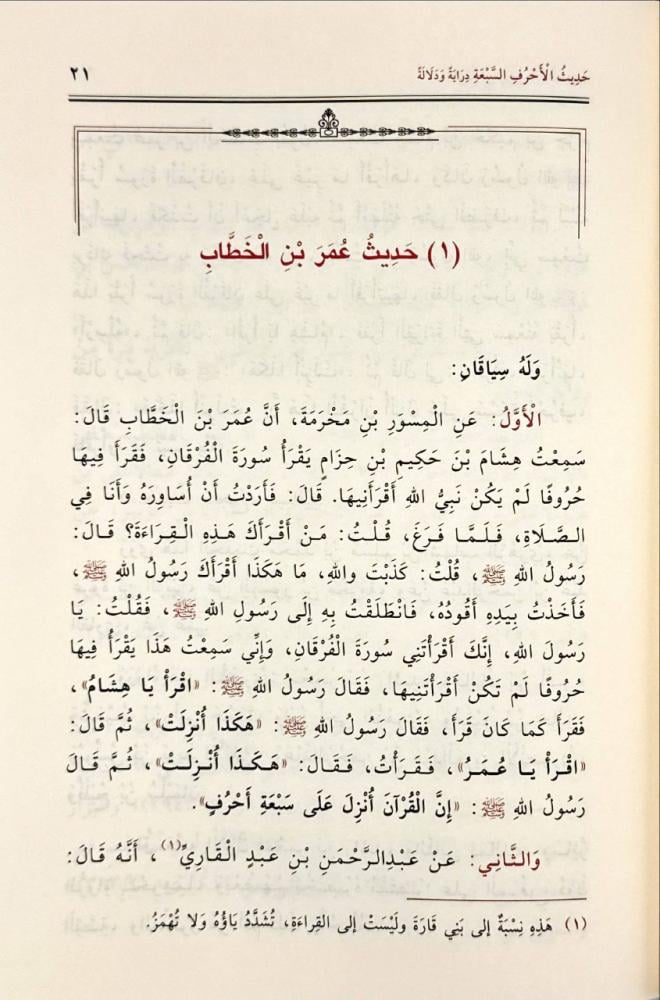 حَدِيثُ الْأَحْرُفِ السَّبْعَةِ دِرَايَةً وَدَلَالَةً ٢١
(١) حَدِيثُ عُمَرَ بْنِ الْخَطَّابِ
وَلَهُ سِيَاقَانِ:
الْأَوَّلُ: عَنِ الْمِسْوَرِ بْنِ مَخْرَمَةَ، أَنَّ عُمَرَ بْنَ الْخَطَّابِ قَالَ:
سَمِعْتُ هِشَامَ بْنَ حَكِيمِ بْنِ حِزَامٍ يَقْرَأُ سُورَةَ الْفُرْقَانِ، فَقَرَأَ فِيهَا
حُرُوفًا لَمْ يَكُنْ نَبِيُّ اللهِ أَقْرَأَنِيهَا. قَالَ: فَأَرَدْتُ أَنْ أُسَاوِرَهُ وَأَنَا فِي
الصَّلَاةِ، فَلَمَّا فَرَغَ، قُلْتُ: مَنْ أَقْرَأَكَ هَذِهِ الْقِرَاءَةَ؟ قَالَ:
رَسُولُ اللهِ ﷺ، قُلْتُ: كَذَبْتَ وَاللهِ، مَا هَكَذَا أَقْرَأَكَ رَسُولُ اللهِ ﷺ،
فَأَخَذْتُ بِيَدِهِ أَقُودُهُ، فَانْطَلَقْتُ بِهِ إِلَى رَسُولِ اللهِ ﷺ، فَقُلْتُ: يَا
رَسُولَ اللهِ، إِنَّكَ أَقْرَأْتَنِي سُورَةَ الْفُرْقَانِ، وَإِنِّي سَمِعْتُ هَذَا يَقْرَأُ فِيهَا
حُرُوفًا لَمْ تَكُنْ أَقْرَأْتَنِيهَا، فَقَالَ رَسُولُ اللهِ ﷺ: «اقْرَأْ يَا هِشَامُ»،
فَقَرَأَ كَمَا كَانَ قَرَأَ، فَقَالَ رَسُولُ اللهِ ﷺ: «هَكَذَا أُنْزِلَتْ»، ثُمَّ قَالَ:
«اقْرَأْ يَا عُمَرُ»، فَقَرَأْتُ، فَقَالَ: «هَكَذَا أُنْزِلَتْ»، ثُمَّ قَالَ
رَسُولُ اللهِ ﷺ: «إِنَّ الْقُرْآنَ أُنْزِلَ عَلَى سَبْعَةِ أَحْرُفٍ».
وَالثَّانِي: عَنْ عَبْدِالرَّحْمَنِ بْنِ عَبْدٍ الْقَارِيِّ(١)، أَنَّهُ قَالَ:
(١) هَذِهِ نِسْبَةٌ إِلى بَنِي قَارَةَ وَلَيْسَتْ إِلى القِرَاءَةِ، تُشَدَّدُ يَاؤُهُ وَلَا تُهْمَزُ.